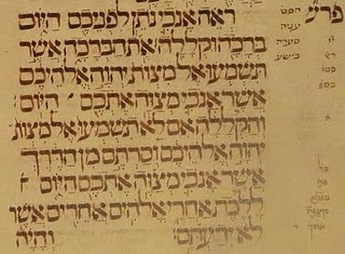 פרש
הפט
עניה
סערה
בישע
ראה אנכי נתן לפניכם היום
ברכה וקללה את הברכה אשר
תשמעו אל מצות יהוה אלהיכם
אשר אנכי מצוה אתכם היום
והקללה אם לא תשמעו אל מצות
יהוה אלהיכם וסרתם מן הדרך
אשר אנכי מצוה אתכם היום
ללכת אחרי אלהים אחרים אשר
לא ידעתם והיה